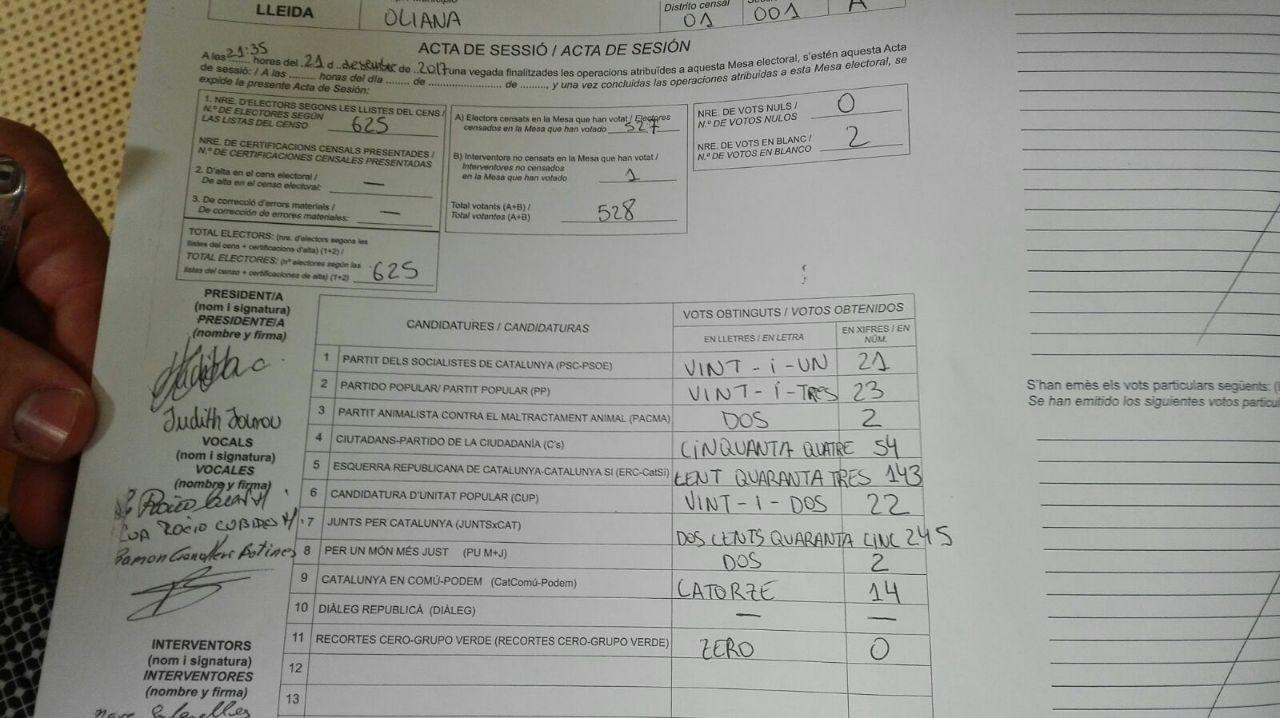 LLEIDA
OLIANA
Distrito censal
01
001
A
ACTA DE SESSIÓ / ACTA DE SESIÓN
A les 21:35 hores del 21 d desembre de 2017 una vegada finalitzades les operacions atribuïdes a aquesta Mesa electoral, s'estén aquesta Acta
de sessió: / A las ........ horas del día ........ de .................... de ........, y una vez concluidas las operaciones atribuidas a esta Mesa electoral, se
expide la presente Acta de Sesión:
1. NRE. D'ELECTORS SEGONS LES LLISTES DEL CENS /
N.º DE ELECTORES SEGÚN
LAS LISTAS DEL CENSO 625
NRE. DE CERTIFICACIONS CENSALS PRESENTADES /
N.º DE CERTIFICACIONES CENSALES PRESENTADAS
2. D'alta en el cens electoral /
De alta en el censo electoral: —
3. De correcció d'errors materials /
De corrección de errores materiales: —
TOTAL ELECTORS: (nre. d'electors segons les
llistes del cens + certificacions d'alta) (1+2) /
TOTAL ELECTORES: (nº electores según las
listas del censo + certificaciones de alta) (1+2) 625
A) Electors censats en la Mesa que han votat / Electores
censados en la Mesa que han votado 527
B) Interventors no censats en la Mesa que han votat /
Interventores no censados
en la Mesa que han votado 1
Total votants (A+B) /
Total votantes (A+B) 528
NRE. DE VOTS NULS /
N.º DE VOTOS NULOS 0
NRE. DE VOTS EN BLANC /
N.º DE VOTOS EN BLANCO 2
PRESIDENT/A
(nom i signatura)
PRESIDENTE/A
(nombre y firma)
Judith
VOCALS
(nom i signatura)
VOCALES
(nombre y firma)
ROCIO CUBIDES
Ramon
INTERVENTORS
(nom i signatura)
INTERVENTORES
(nombre y firma)
CANDIDATURES / CANDIDATURAS
VOTS OBTINGUTS / VOTOS OBTENIDOS
EN LLETRES / EN LETRA
EN XIFRES / EN NÚM.
1 PARTIT DELS SOCIALISTES DE CATALUNYA (PSC-PSOE) VINT-i-UN 21
2 PARTIDO POPULAR/ PARTIT POPULAR (PP) VINT-i-TRES 23
3 PARTIT ANIMALISTA CONTRA EL MALTRACTAMENT ANIMAL (PACMA) DOS 2
4 CIUTADANS-PARTIDO DE LA CIUDADANÍA (C's) CINQUANTA QUATRE 54
5 ESQUERRA REPUBLICANA DE CATALUNYA-CATALUNYA SI (ERC-CatSí) CENT QUARANTA TRES 143
6 CANDIDATURA D'UNITAT POPULAR (CUP) VINT-I-DOS 22
7 JUNTS PER CATALUNYA (JUNTSxCAT) DOS CENTS QUARANTA CINC 245
8 PER UN MÓN MÉS JUST (PU M+J) DOS 2
9 CATALUNYA EN COMÚ-PODEM (CatComú-Podem) CATORZE 14
10 DIÀLEG REPUBLICÀ (DIÀLEG) — —
11 RECORTES CERO-GRUPO VERDE (RECORTES CERO-GRUPO VERDE) ZERO 0
12
13
S'han emès els vots particulars següents:
Se han emitido los siguientes votos